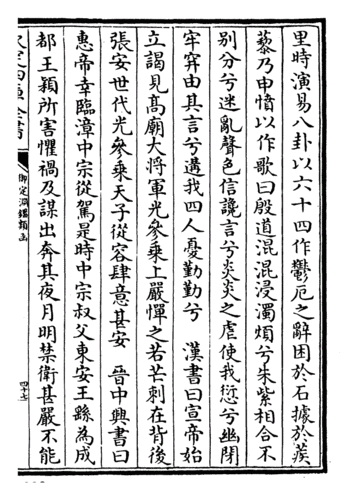 里時演易八卦以六十四作鬱厄之辭困於石據於蒺
藜乃申憤以作歌曰殷道混混浸濁煩兮朱紫相合不
別分兮迷亂聲色信讒言兮炎炎之虐使我愆兮幽閉
牢穽由其言兮遘我四人憂勤勤兮　漢書曰宣帝始
立謁見髙廟大將軍光參乗上嚴憚之若芒刺在背後
張安世代光參乗天子從容肆意甚安　晉中興書曰
惠帝幸臨漳中宗從駕是時中宗叔父東安王繇為成
都王穎所害懼禍及謀出奔其夜月明禁衛甚嚴不能
御定淵鑑類函
四十七